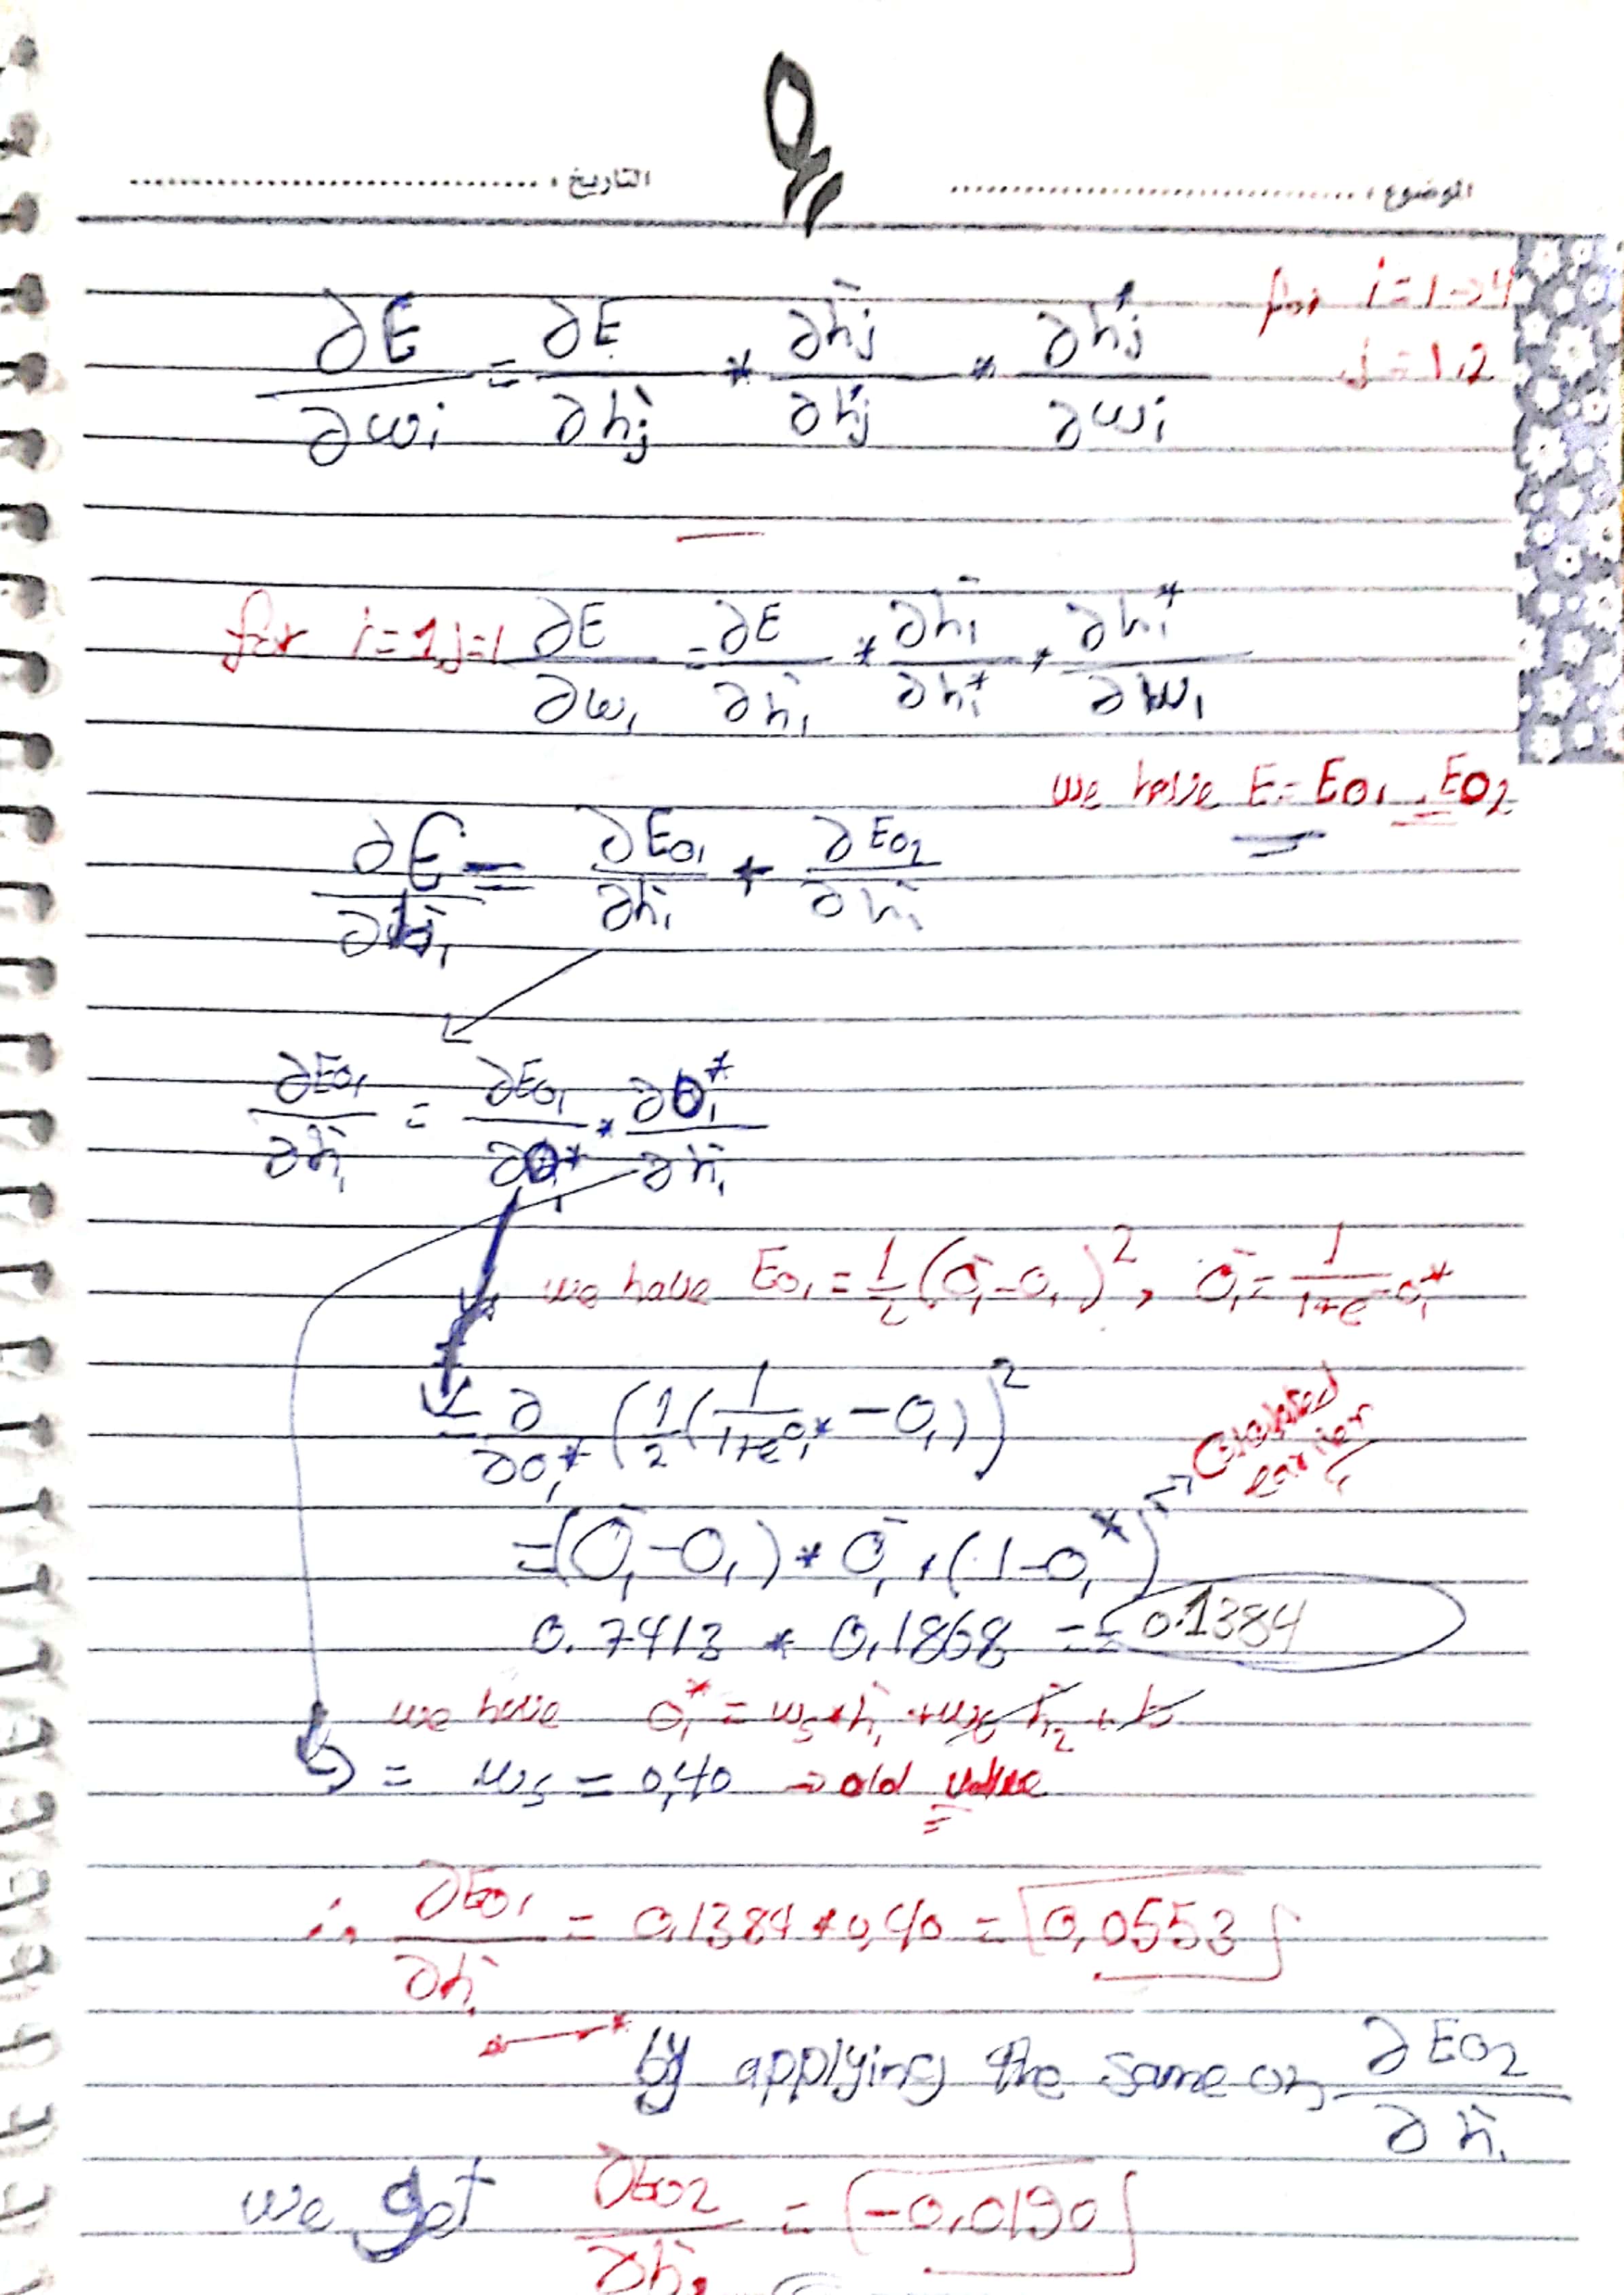 الموضوع : ........................ التاريخ : ........................
for i = 1 → 4
j = 1, 2
∂E/∂wi = ∂E/∂h̄j * ∂h̄j/∂h*j * ∂h*j/∂wi
for i = 1, j = 1 ∂E/∂w1 = ∂E/∂h̄1 * ∂h̄1/∂h*1 * ∂h*1/∂w1
we have E = EO1 , EO2
∂E/∂h̄1 = ∂EO1/∂h̄1 + ∂EO2/∂h̄1
∂EO1/∂h̄1 = ∂EO1/∂O*1 * ∂O*1/∂h̄1
we have EO1 = 1/2 (Ō1 - O1)², Ō1 = 1/(1+e^-O*1)
= ∂/∂O*1 (1/2 (1/(1+e^O*1) - O1))²
= (Ō1 - O1) * Ō1 * (1 - O1*) → earlier
0.7413 * 0,1868 = 0.1384
we have O*1 = w5 * h̄1 + w6 h̄2 + b
= w5 = 0,40 → old value
∴ ∂EO1/∂h̄1 = 0,1384 * 0,40 = [0,0553]
by applying the same on ∂EO2/∂h̄1
we get ∂EO2/∂h̄1 = [-0,0190]